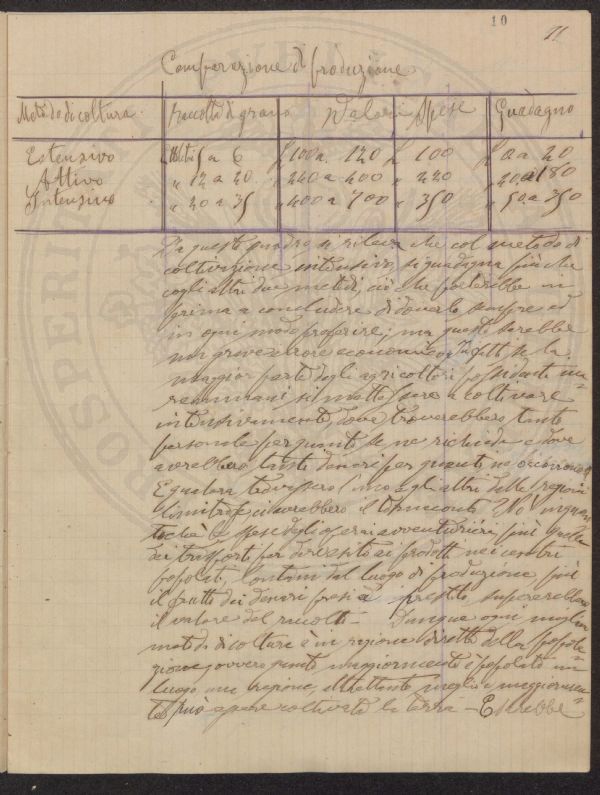 10
11
Comparazione di produzione
Metodo di coltura Raccolti di grano Valori Spese Guadagno
Estensivo 5 a 6 £ 100 a 120 £ 100 £ 0 a 20
Attivo " 12 a 20 " 240 a 400 " 220 " 20 a 180
Intensivo " 20 a 35 " 400 a 700 " 350 " 50 a 350
Da questo quadro si rileva che col metodo di
coltivazione intensivo, si guadagna più che
cogli altri due metodi, ciò che porterebbe in
prima a concludere di doverlo sempre ed
in ogni modo preferire; ma questo sarebbe
un grave errore economico. Infatti se la
maggior parte degli agricoltori
si mettessero a coltivare
intensivamente, dove troverebbero tanto
personale per quanto se ne richiede e dove
avrebbero tanti denari per quanti ne occorrono?
E qualora gli altri delle regioni
limitrofe ci avrebbero il tornaconto? No!
le spese degli operai avventurieri, più quelle
dei trasporti per diversi prodotti nei centri
popolati, lontani dal luogo di produzione, più
il frutto dei denari presi a prestito supererebbero
il valore del raccolto. Dunque ogni miglior
metodo di colture è in ragione diretta della popola-
zione, ovvero quanto maggiormente è popolato un
luogo, una regione, altrettanto meglio e maggiormen-
te può essere coltivata la terra. E sarebbe